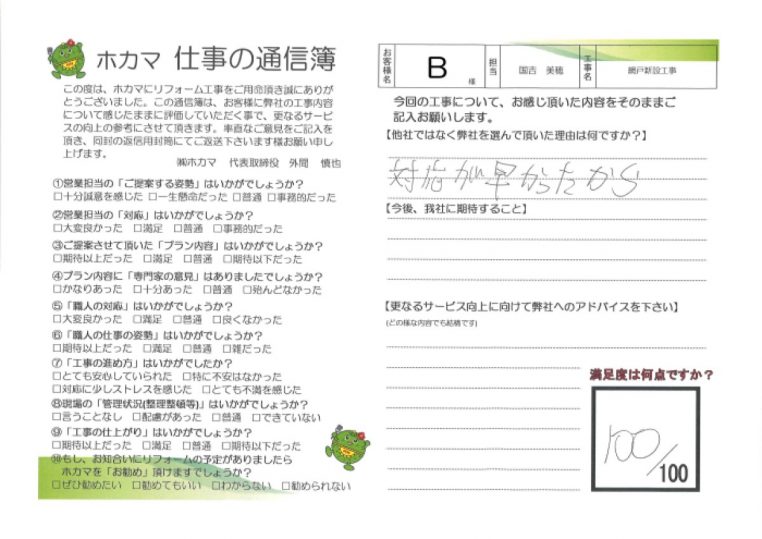 ホカマ 仕事の通信簿
この度は、ホカマにリフォーム工事をご用命頂き誠にありが
とうございました。この通信簿は、お客様に弊社の工事内容
について感じたままに評価していただく事で、更なるサービ
スの向上の参考にさせて頂きます。率直なご意見をご記入を
頂き、同封の返信用封筒にてご返送下さいます様お願い申し
上げます。
㈱ホカマ 代表取締役 外間 慎也
①営業担当の「ご提案する姿勢」はいかがでしょうか？
□十分誠意を感じた □一生懸命だった □普通 □事務的だった
②営業担当の「対応」はいかがでしょうか？
□大変良かった □満足 □普通 □事務的だった
③ご提案させて頂いた「プラン内容」はいかがでしょうか？
□期待以上だった □満足 □普通 □期待以下だった
④プラン内容に「専門家の意見」はありましたでしょうか？
□かなりあった □十分あった □普通 □殆んどなかった
⑤「職人の対応」はいかがでしょうか？
□大変良かった □満足 □普通 □良くなかった
⑥「職人の仕事の姿勢」はいかがでしょうか？
□期待以上だった □満足 □普通 □雑だった
⑦「工事の進め方」はいかがでしたか？
□とても安心していられた □特に不安はなかった
□対応に少しストレスを感じた □とても不満を感じた
⑧現場の「管理状況(整理整頓等)」はいかがでしょうか？
□言うことなし □配慮があった □普通 □できていない
⑨「工事の仕上がり」はいかがでしょうか？
□期待以上だった □満足 □普通 □期待以下だった
⑩もし、お知合いにリフォームの予定がありましたら
ホカマを「お勧め」頂けますでしょうか？
□ぜひ勧めたい □勧めてもいい □わからない □勧められない
お客様名 B 様 担当 国吉 美穂 工事名 網戸新設工事
今回の工事について、お感じ頂いた内容をそのままご
記入お願いします。
【他社ではなく弊社を選んで頂いた理由は何ですか？】
対応が早かったから
【今後、我社に期待すること】
【更なるサービス向上に向けて弊社へのアドバイスを下さい】
(どの様な内容でも結構です)
満足度は何点ですか？
100/100